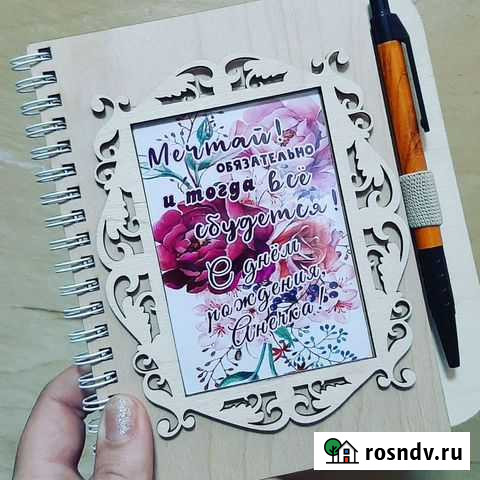 Мечтай!
обязательно
и тогда всё
сбудется!
С днём
рождения,
Анечка!
rosndv.ru